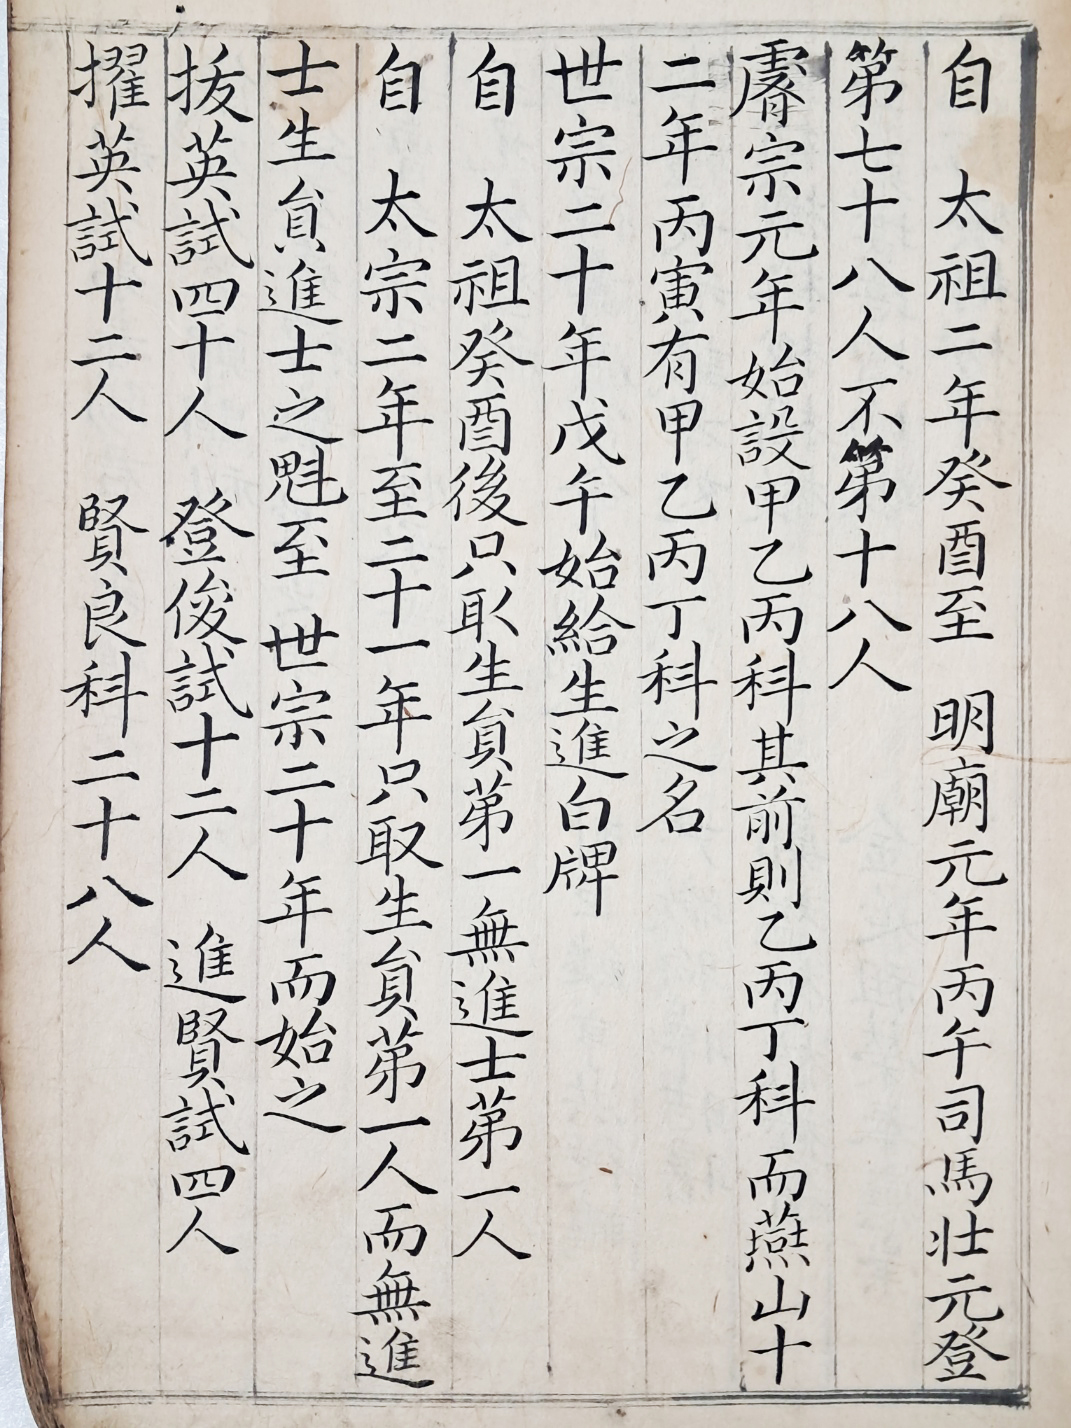 自　太祖二年癸酉至　明廟元年丙午司馬壯元登
第七十八人不第十八人
睿宗元年始設甲乙丙科其前則乙丙丁科而燕山十
二年丙寅有甲乙丙丁科之名
世宗二十年戊午始給生進白牌
自　太祖癸酉後只取生員第一無進士第一人
自　太宗二年至二十一年只取生員第一人而無進
士生員進士之魁至　世宗二十年而始之
拔英試四十人　登俊試十二人　進賢試四人
擢英試十二人　賢良科二十八人